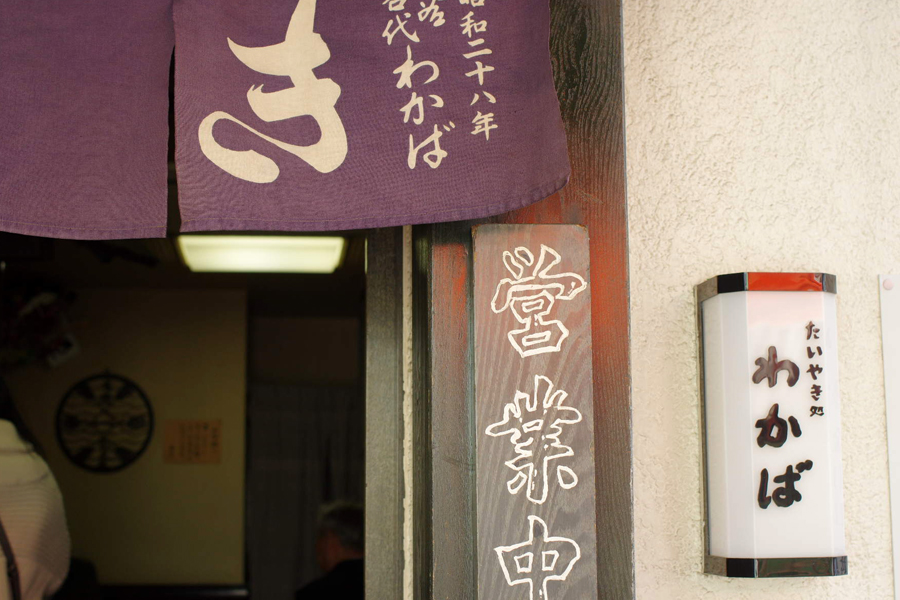 昭和二十八年
四谷
名代わかば
き
営業中
たいやき処
わかば